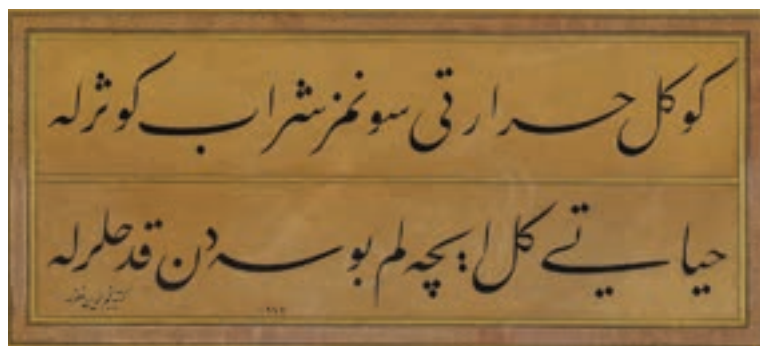 كوكل حرارتى سونمز شراب كوثرله
حياتى كل ايچه لم بوسه دن قدحلرله